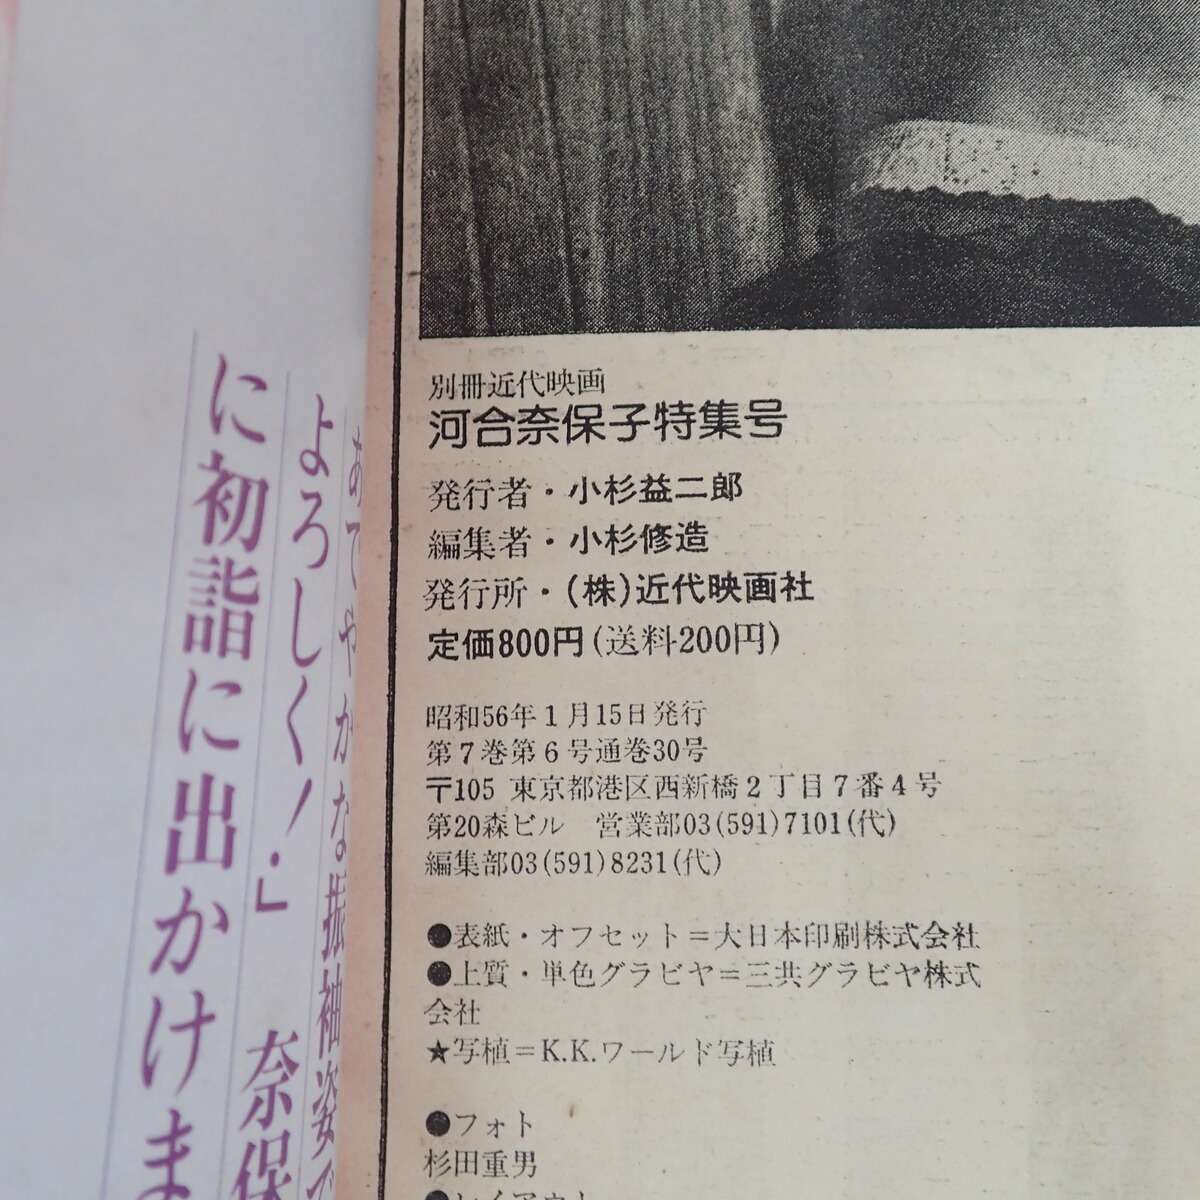 別冊近代映画
河合奈保子特集号
発行者・小杉益二郎
編集者・小杉修造
発行所・(株)近代映画社
定価800円(送料200円)
昭和56年1月15日発行
第7巻第6号通巻30号
〒105 東京都港区西新橋2丁目7番4号
第20森ビル 営業部03(591)7101(代)
編集部03(591)8231(代)
●表紙・オフセット＝大日本印刷株式会社
●上質・単色グラビヤ＝三共グラビヤ株式
会社
★写植＝K.K.ワールド写植
●フォト
杉田重男
●レイアウト
あでやかな振袖姿で
よろしく！」 奈保
に初詣に出かけま